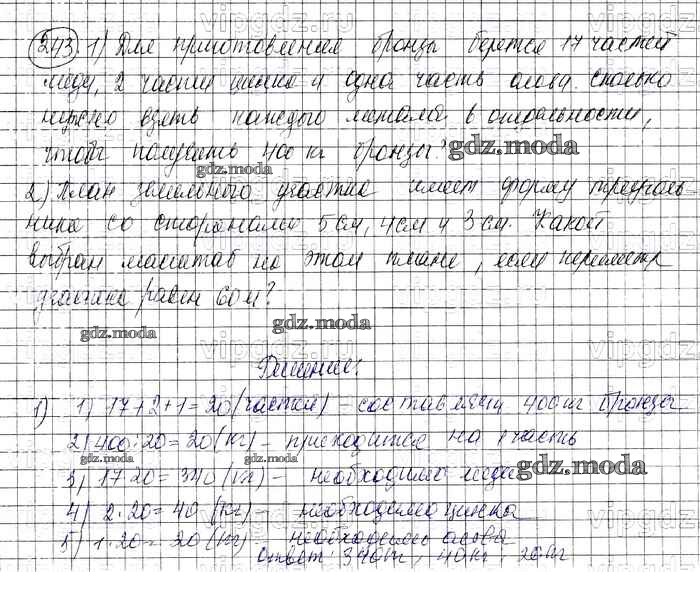 243. 1) Для приготовления бронзы берется 17 частей
меди, 2 части цинка и одна часть олова. Сколько
нужно взять каждого металла в отдельности,
чтобы получить 400 кг бронзы?
2) План земельного участка имеет форму треуголь-
ника со сторонами 5 см, 4 см и 3 см. Какой
выбран масштаб на этом плане, если периметр
участка равен 60 м?
Решение:
1) 1) 17+2+1=20 (частей) – составляют 400 кг бронзы
2) 400:20=20 (кг) – приходится на 1 часть
3) 17·20=340 (кг) – необходимо меди
4) 2·20=40 (кг) – необходимо цинка
5) 1·20=20 (кг) – необходимо олова
ответ: 340 кг, 40 кг, 20 кг
gdz.moda
gdz.moda
gdz.moda
gdz.moda
gdz.moda
gdz.moda
gdz.moda
vipgdz.ru